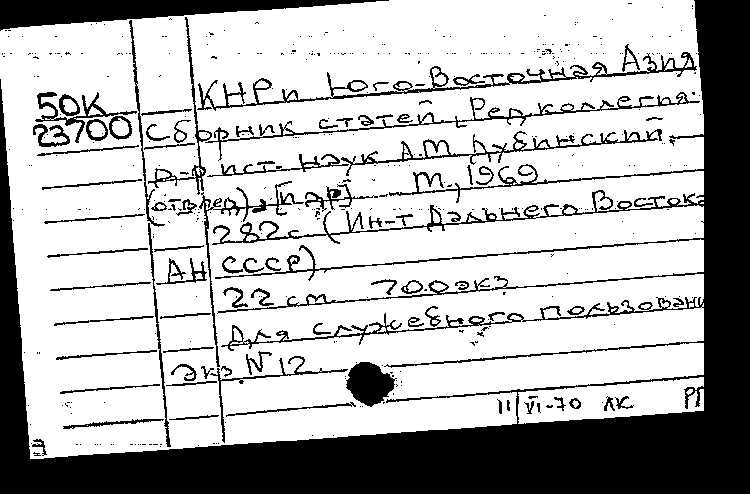 КНР и Юго-Восточная Азия
50К
23700
Сборник статей. Ред.коллегия:
д-р ист. наук А.М. Дубинский.
(отв.ред), [и др]. М., 1969.
282с (Ин-т Дальнего Востока
АН СССР).
22 см. 700экз
Для служебного пользовани
Экз. N 12.
11/VI-70 ЛК РП